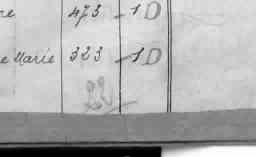 re 473 -1D
e Marie 323 -1D
22